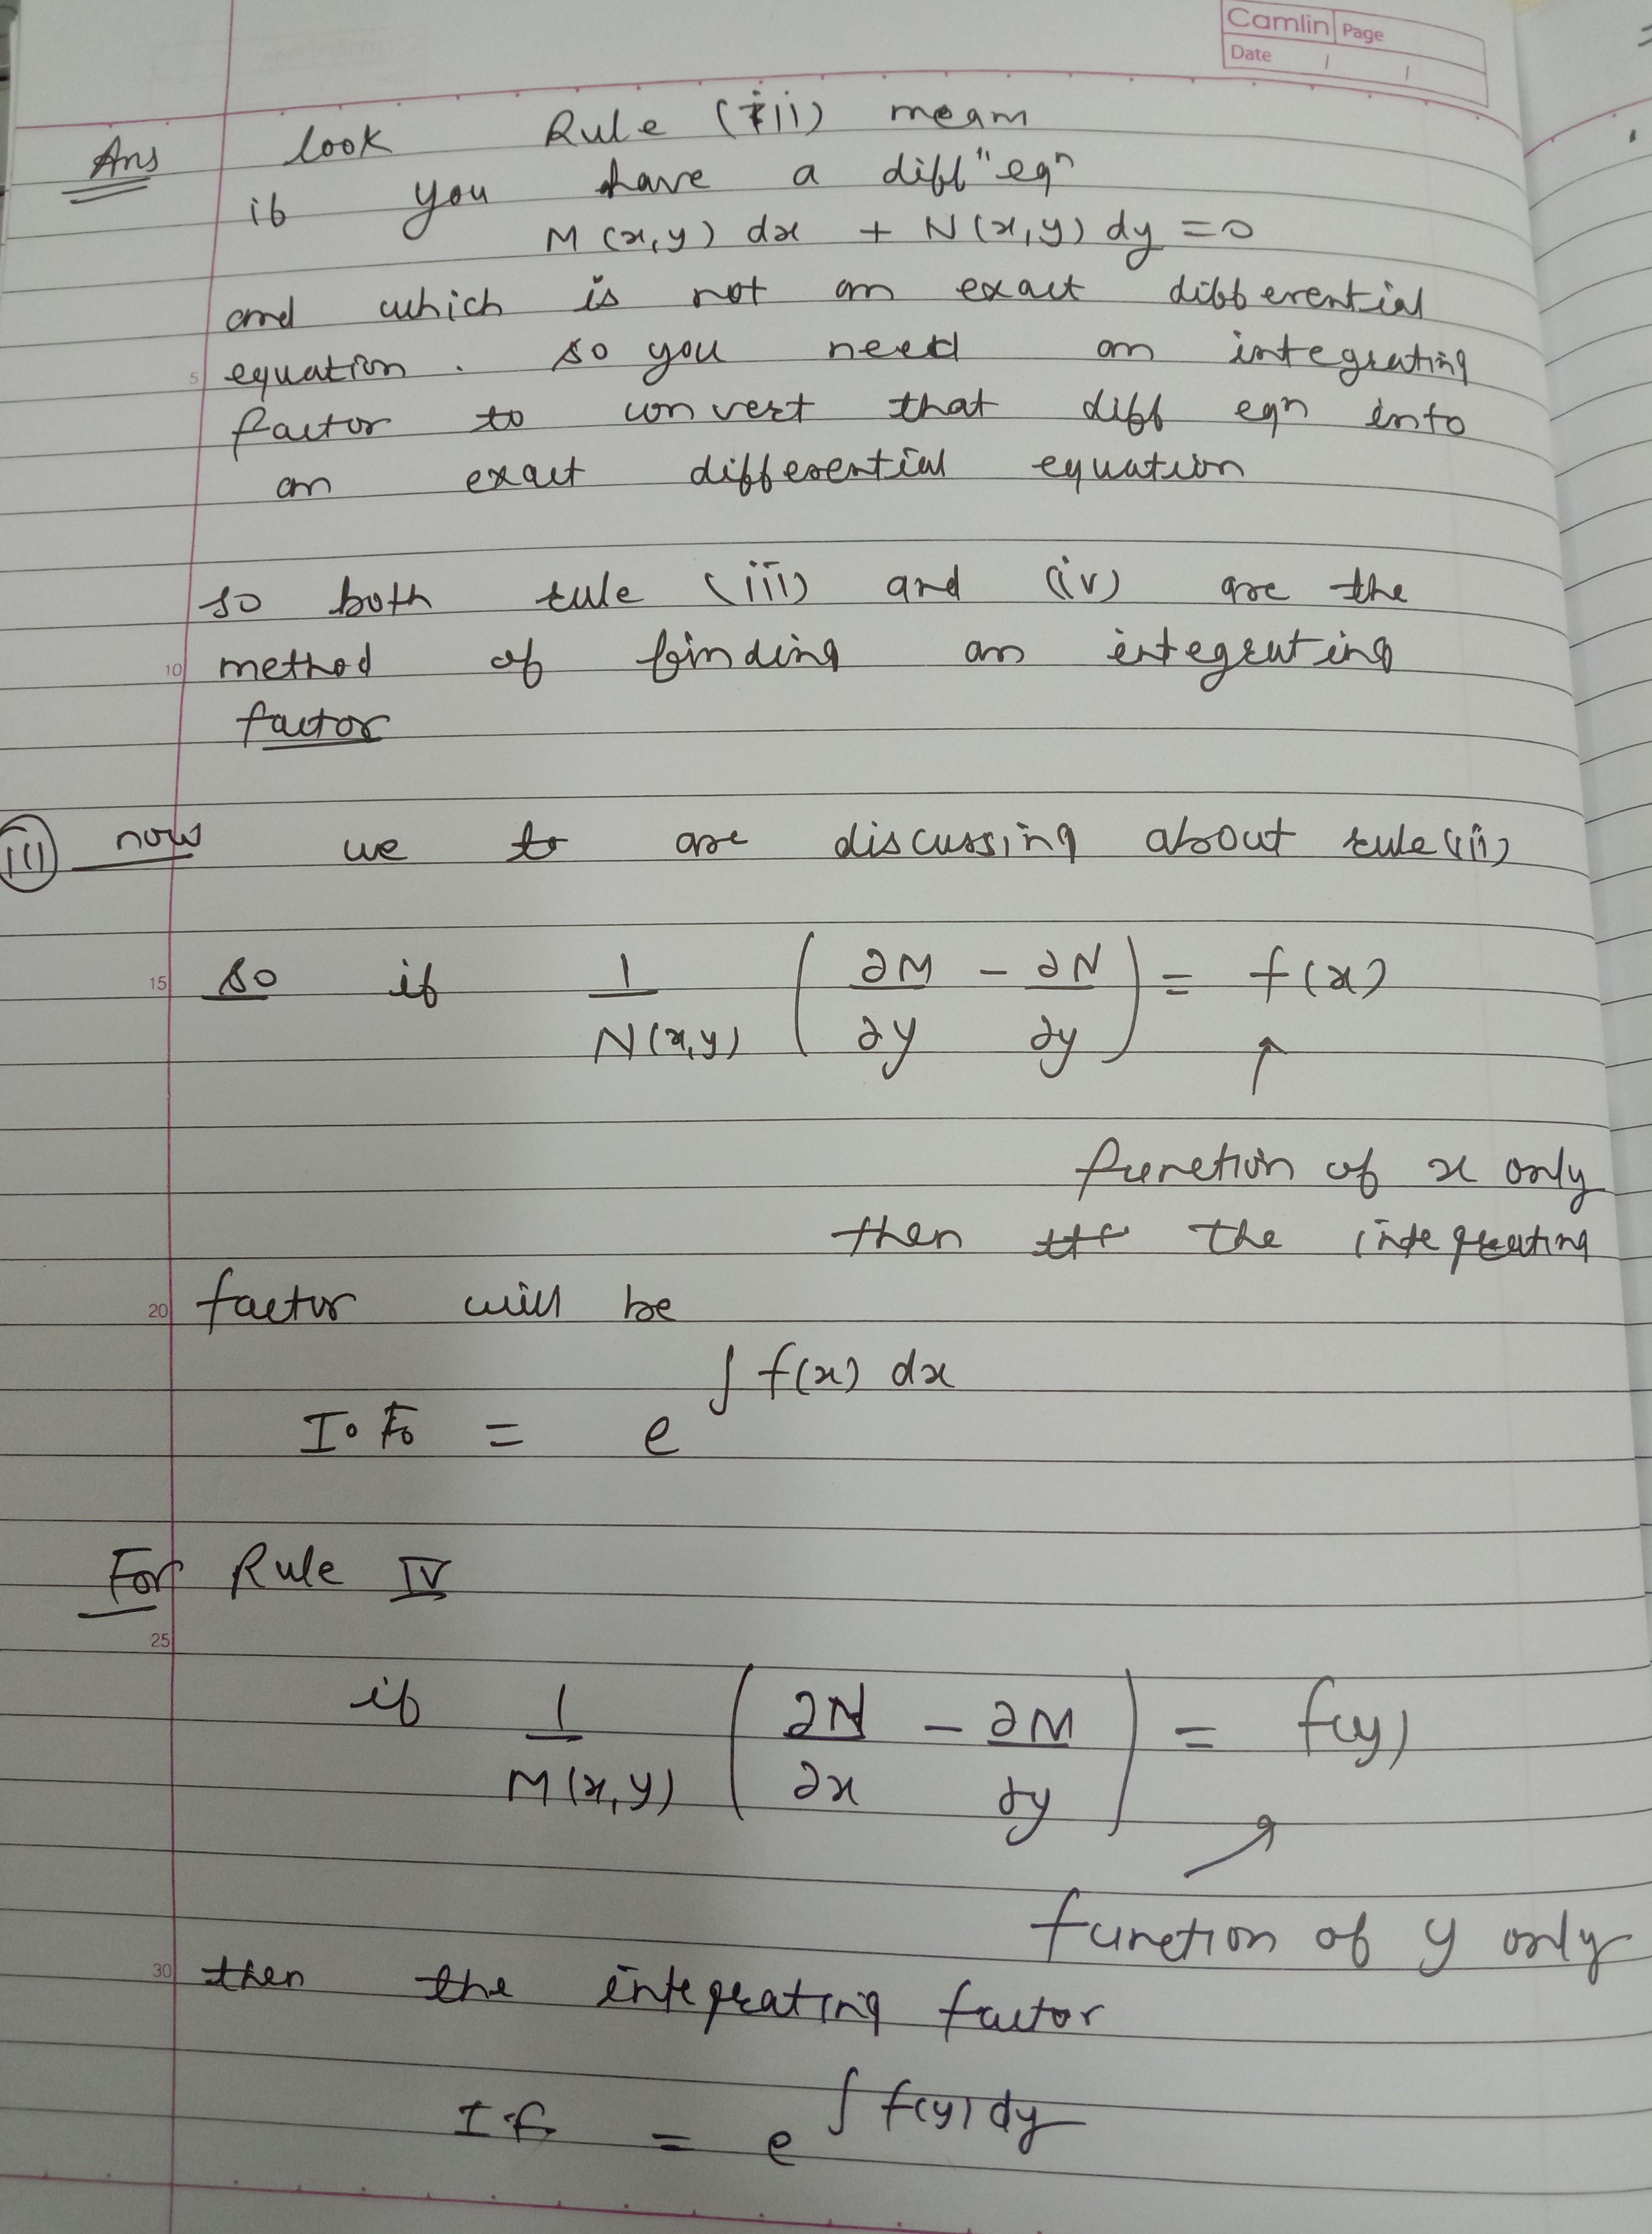 Camlin Page
Date / /
Ans look Rule (iii) mean
if you have a diffⁿ eqⁿ
M(x,y) dx + N(x,y) dy = 0
and which is not an exact differential
5 equation. so you need an integrating
factor to convert that diff eqn into
an exact differential equation
so both rule (iii) and (iv) are the
10 method of finding an integrating
factor
(iii) now we to are discussing about rule (iii)
15 so if 1/N(x,y) (∂M/∂y - ∂N/∂y) = f(x)
↑
function of x only
then the the integrating
20 factor will be
I.F. = e^∫f(x) dx
For Rule IV
25
if 1/M(x,y) (∂N/∂x - ∂M/∂y) = f(y)
function of y only
30 then the integrating factor
I.F. = e^∫f(y)dy